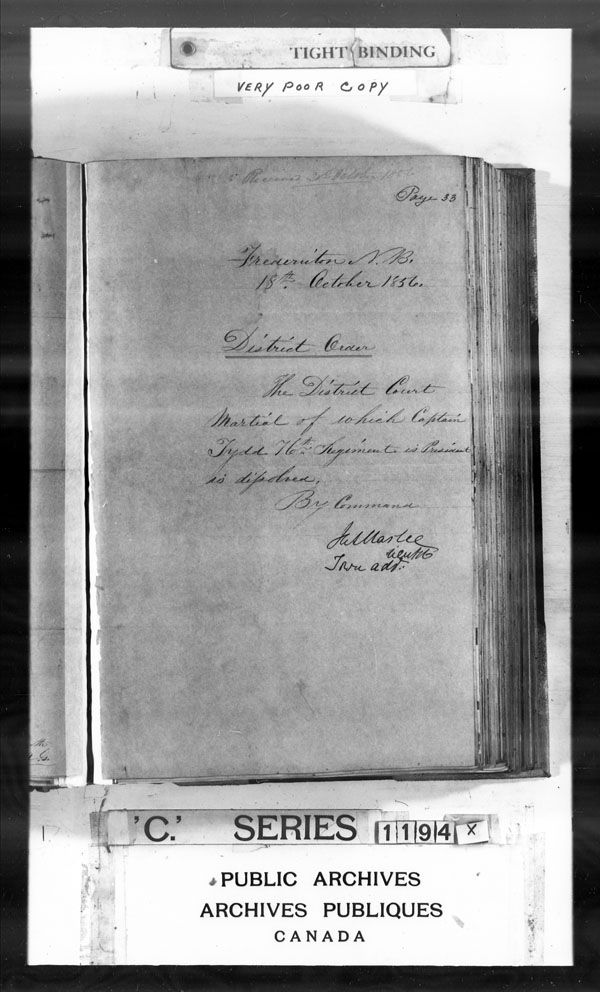 TIGHT BINDING
VERY POOR COPY
Page 33
Fredericton N.B.
18th October 1856.
District Order
The District Court
Martial of which Captain
Tydd 76th Regiment is President
is dissolved.
By Command
Town adjt.
'C.' SERIES 1194 X
PUBLIC ARCHIVES
ARCHIVES PUBLIQUES
CANADA